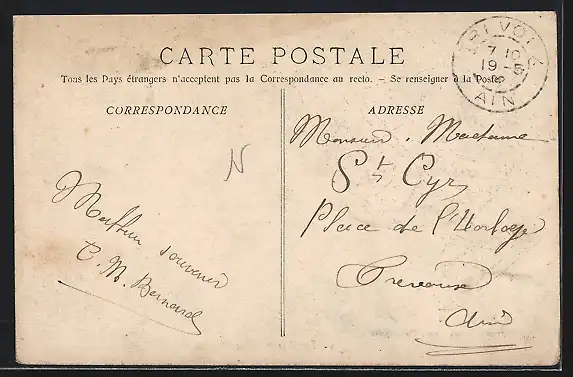 CARTE POSTALE
Tous les Pays étrangers n'acceptent pas la Correspondance au recto. — Se renseigner à la Poste
CORRESPONDANCE
ADRESSE
TREVOUX
7 10
19 - 5
AIN
N
Meilleur souvenir
C. M. Bernard
Monsieur, Madame
St Cyr
Place de l'Horloge
Trévoux
Ain